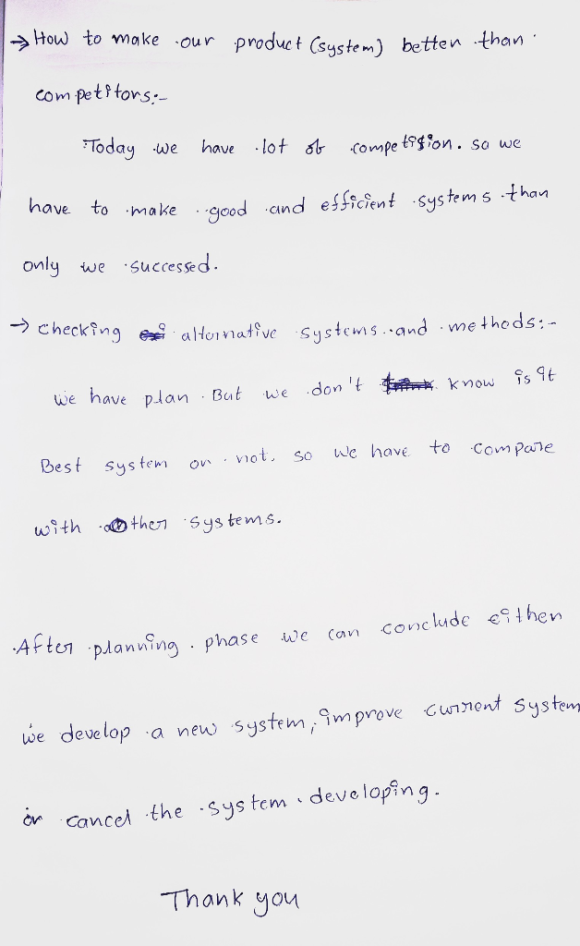 → How to make our product (system) better than
competitors:-
Today we have lot of competision. so we
have to make good and efficient systems than
only we successed.
→ checking alternative systems and methods:-
we have plan. But we don't know is it
Best system or not. so we have to compare
with other systems.
After planning phase we can conclude either
we develop a new system, improve current system
or cancel the system developing.
Thank you